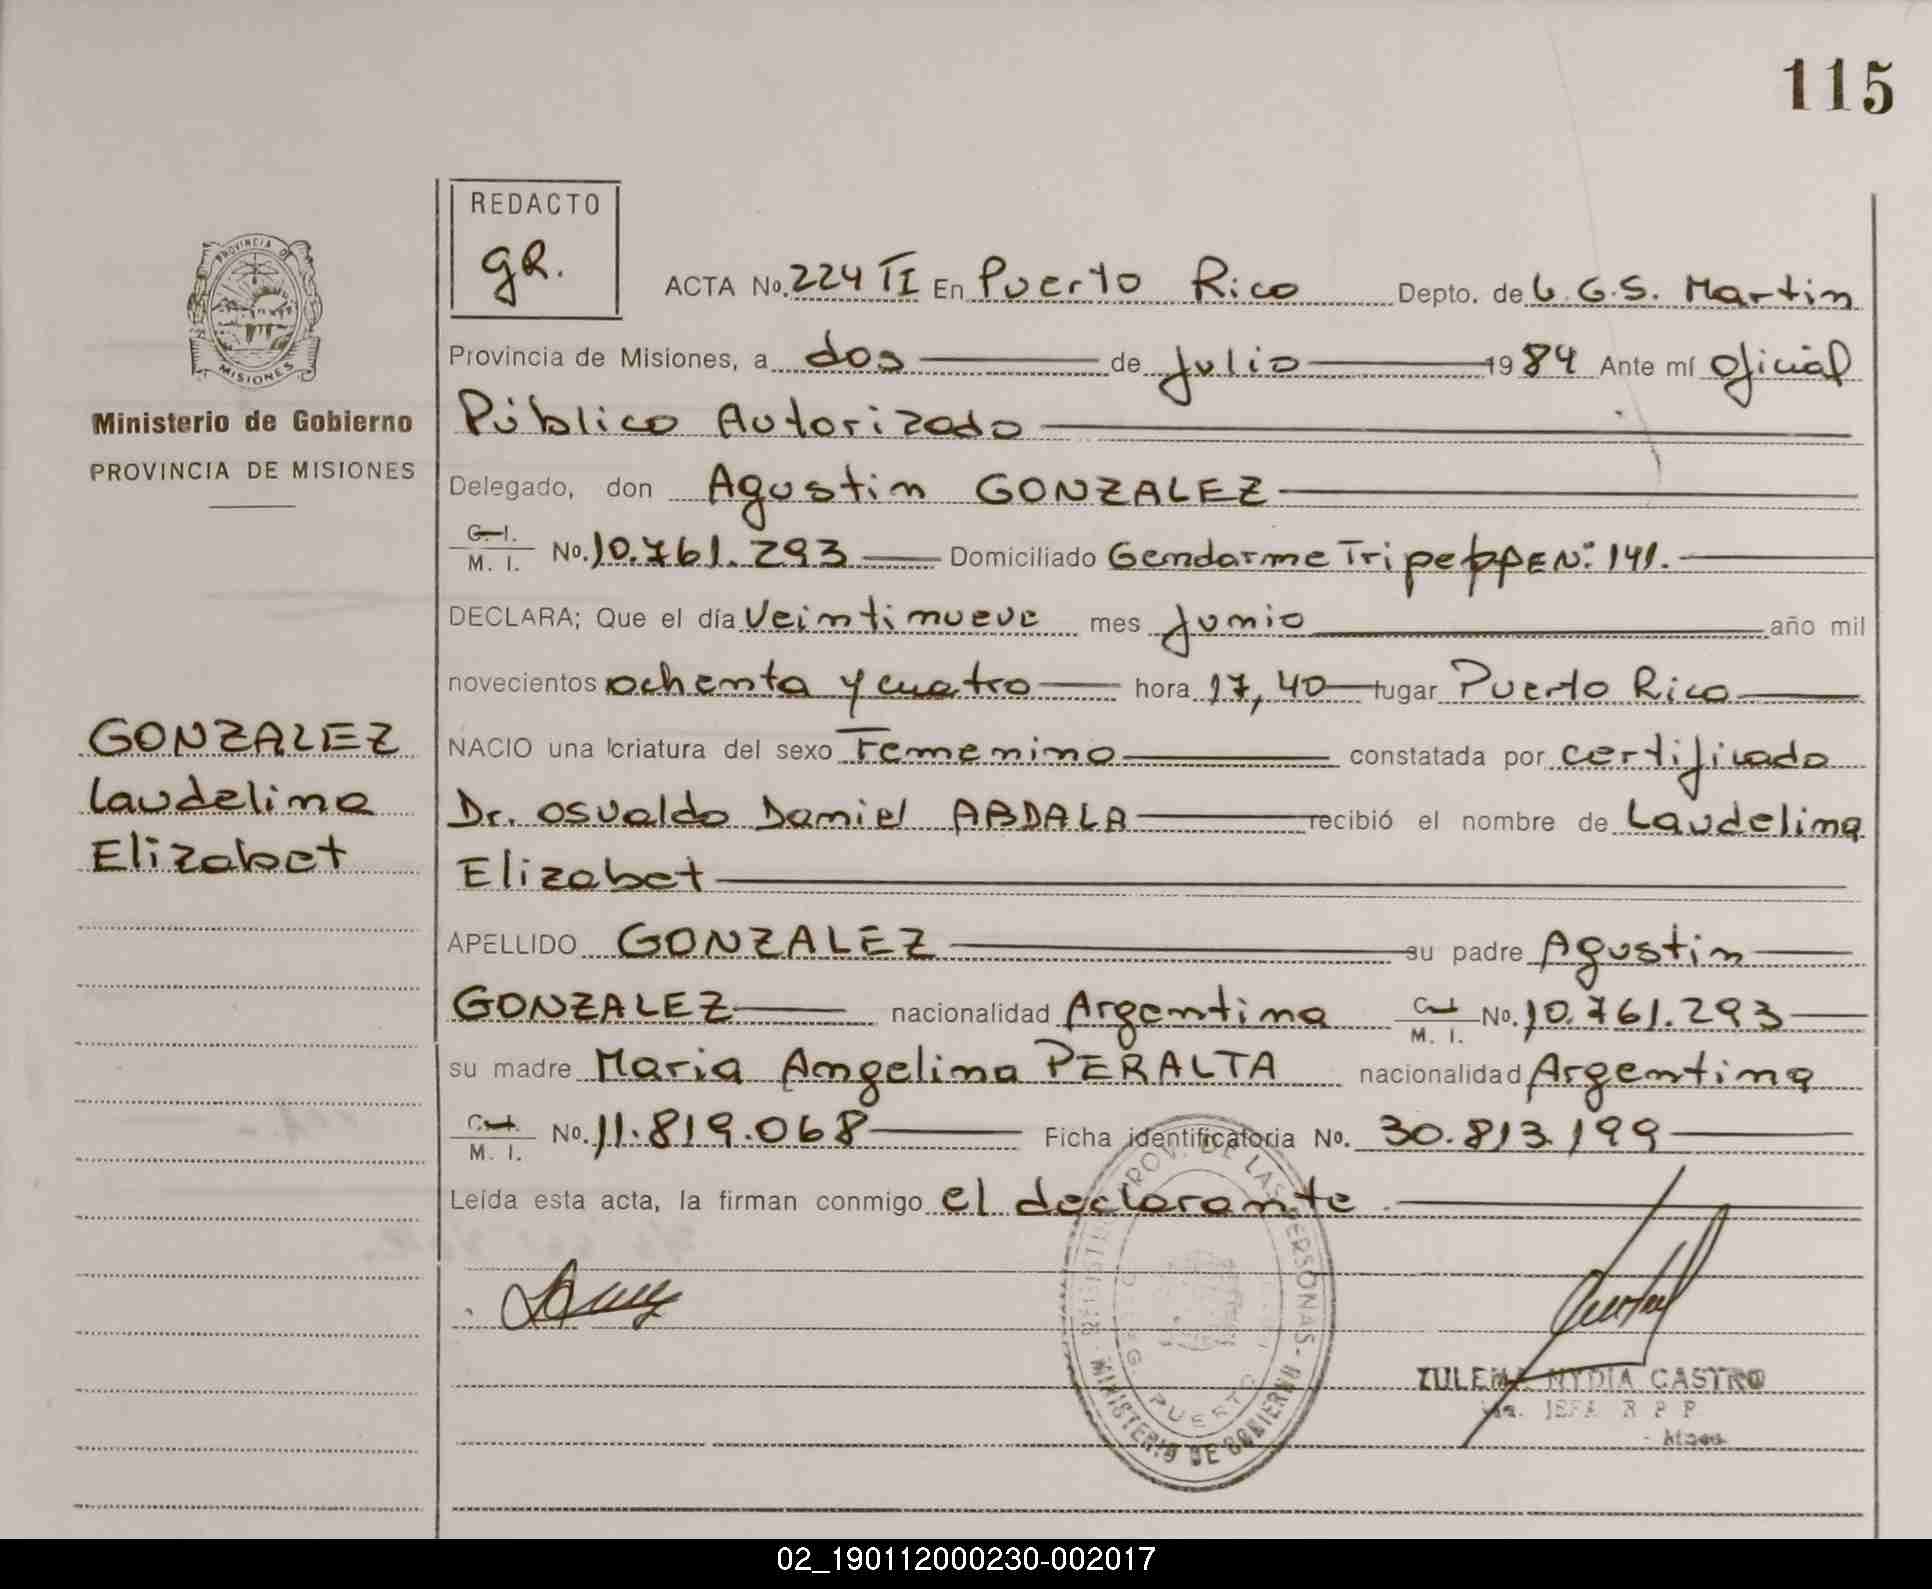 115
REDACTO
gR.
PROVINCIA DE
MISIONES
ACTA No. 224 TI En Puerto Rico Depto. de L.G.S. Martin
Provincia de Misiones, a dos de Julio 1984 Ante mí Oficial
Ministerio de Gobierno
Público Autorizado
PROVINCIA DE MISIONES
Delegado, don Agustin GONZALEZ
C. I.
M. I. No. 10.761.293 Domiciliado Gendarme Tripeppe N: 141.
DECLARA; Que el día Veintinueve mes Junio año mil
novecientos ochenta y cuatro hora 17,40 lugar Puerto Rico
GONZALEZ
NACIO una criatura del sexo Femenino constatada por certificado
Laudelina
Dr. Osvaldo Daniel ABDALA recibió el nombre de Laudelina
Elizabet
Elizabet
APELLIDO GONZALEZ su padre Agustin
GONZALEZ nacionalidad Argentina C. I. M. I. No. 10.761.293
su madre Maria Angelina PERALTA nacionalidad Argentina
C. I.
M. I. No. 11.819.068 Ficha identificatoria No. 30.813.199
Leída esta acta, la firman conmigo el declarante.
PROV. DE LAS PERSONAS - MINISTERIO DE GOBIERNO
PUERTO
ZULEMA NYDIA CASTRO
JEFA R P P
02_190112000230-002017